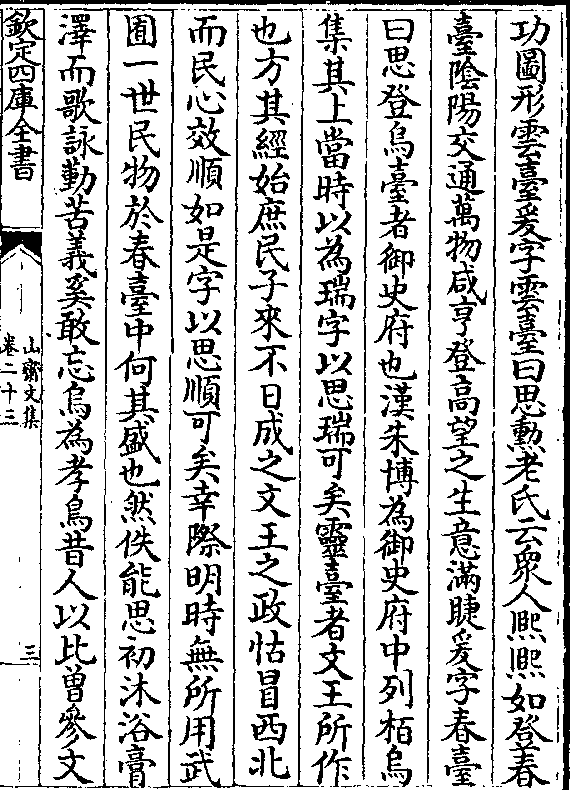 功圖形雲臺爰字雲臺曰思勲老氏云衆人熈熈如登春
臺隂陽交通萬物咸亨登高望之生意滿睫爰字春臺
曰思登烏臺者御史府也漢朱博為御史府中列栢烏
集其上當時以為瑞字以思瑞可矣靈臺者文王所作
也方其經始庶民子來不日成之文王之政怙冒西北
而民心效順如是字以思順可矣幸際明時無所用武
囿一世民物於春臺中何其盛也然佚能思初沐浴膏
澤而歌詠勤苦義奚敢忘烏為孝鳥昔人以比曽參文
欽定四庫全書
山齋文集
卷二十三
三